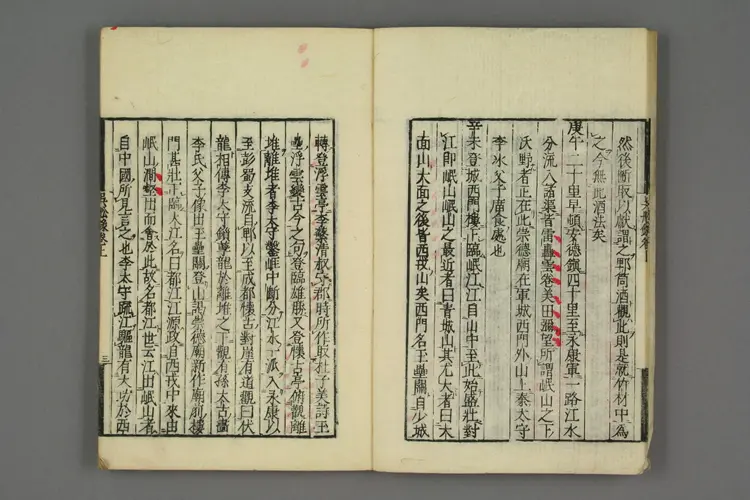 然後斷取以獻謂之郫筒酒觀此則是就竹材中爲
之今無此酒法矣
庚午二十里早頓安德鎮四十里至永康軍一路江水
分流入諸渠皆雷轟雪卷美田彌望所謂岷山之下
沃野者正在此崇德廟在軍城西門外山上秦太守
李冰父子廟食處也
辛未登城西門樓正臨岷江江自山中至此始盛壯對
江即岷山岷山之最近者曰青城山其尤大者曰大
面山大面之後皆西戎山矣西門名玉壘關自少城
轉登浮雲亭李蘩清叔守郡時所作取杜子美詩玉
壘浮雲變古今之句登臨雄勝又登懷古亭俯觀離
堆離堆者李太守鑿崕中斷分江水一派入永康以
至彭蜀支流自郫以至成都懷古對崖有道觀曰伏
龍相傳李太守鎖孽龍於離堆之下觀有孫太古畫
李氏父子像出玉壘關登山謁崇德廟新作廟前樓
門甚壯正臨大江名曰都江江源政自西戎中來由
岷山澗壑出而會於此故名都江世云江出岷山者
自中國所見言之也李太守疏江驅龍有大功於西
三